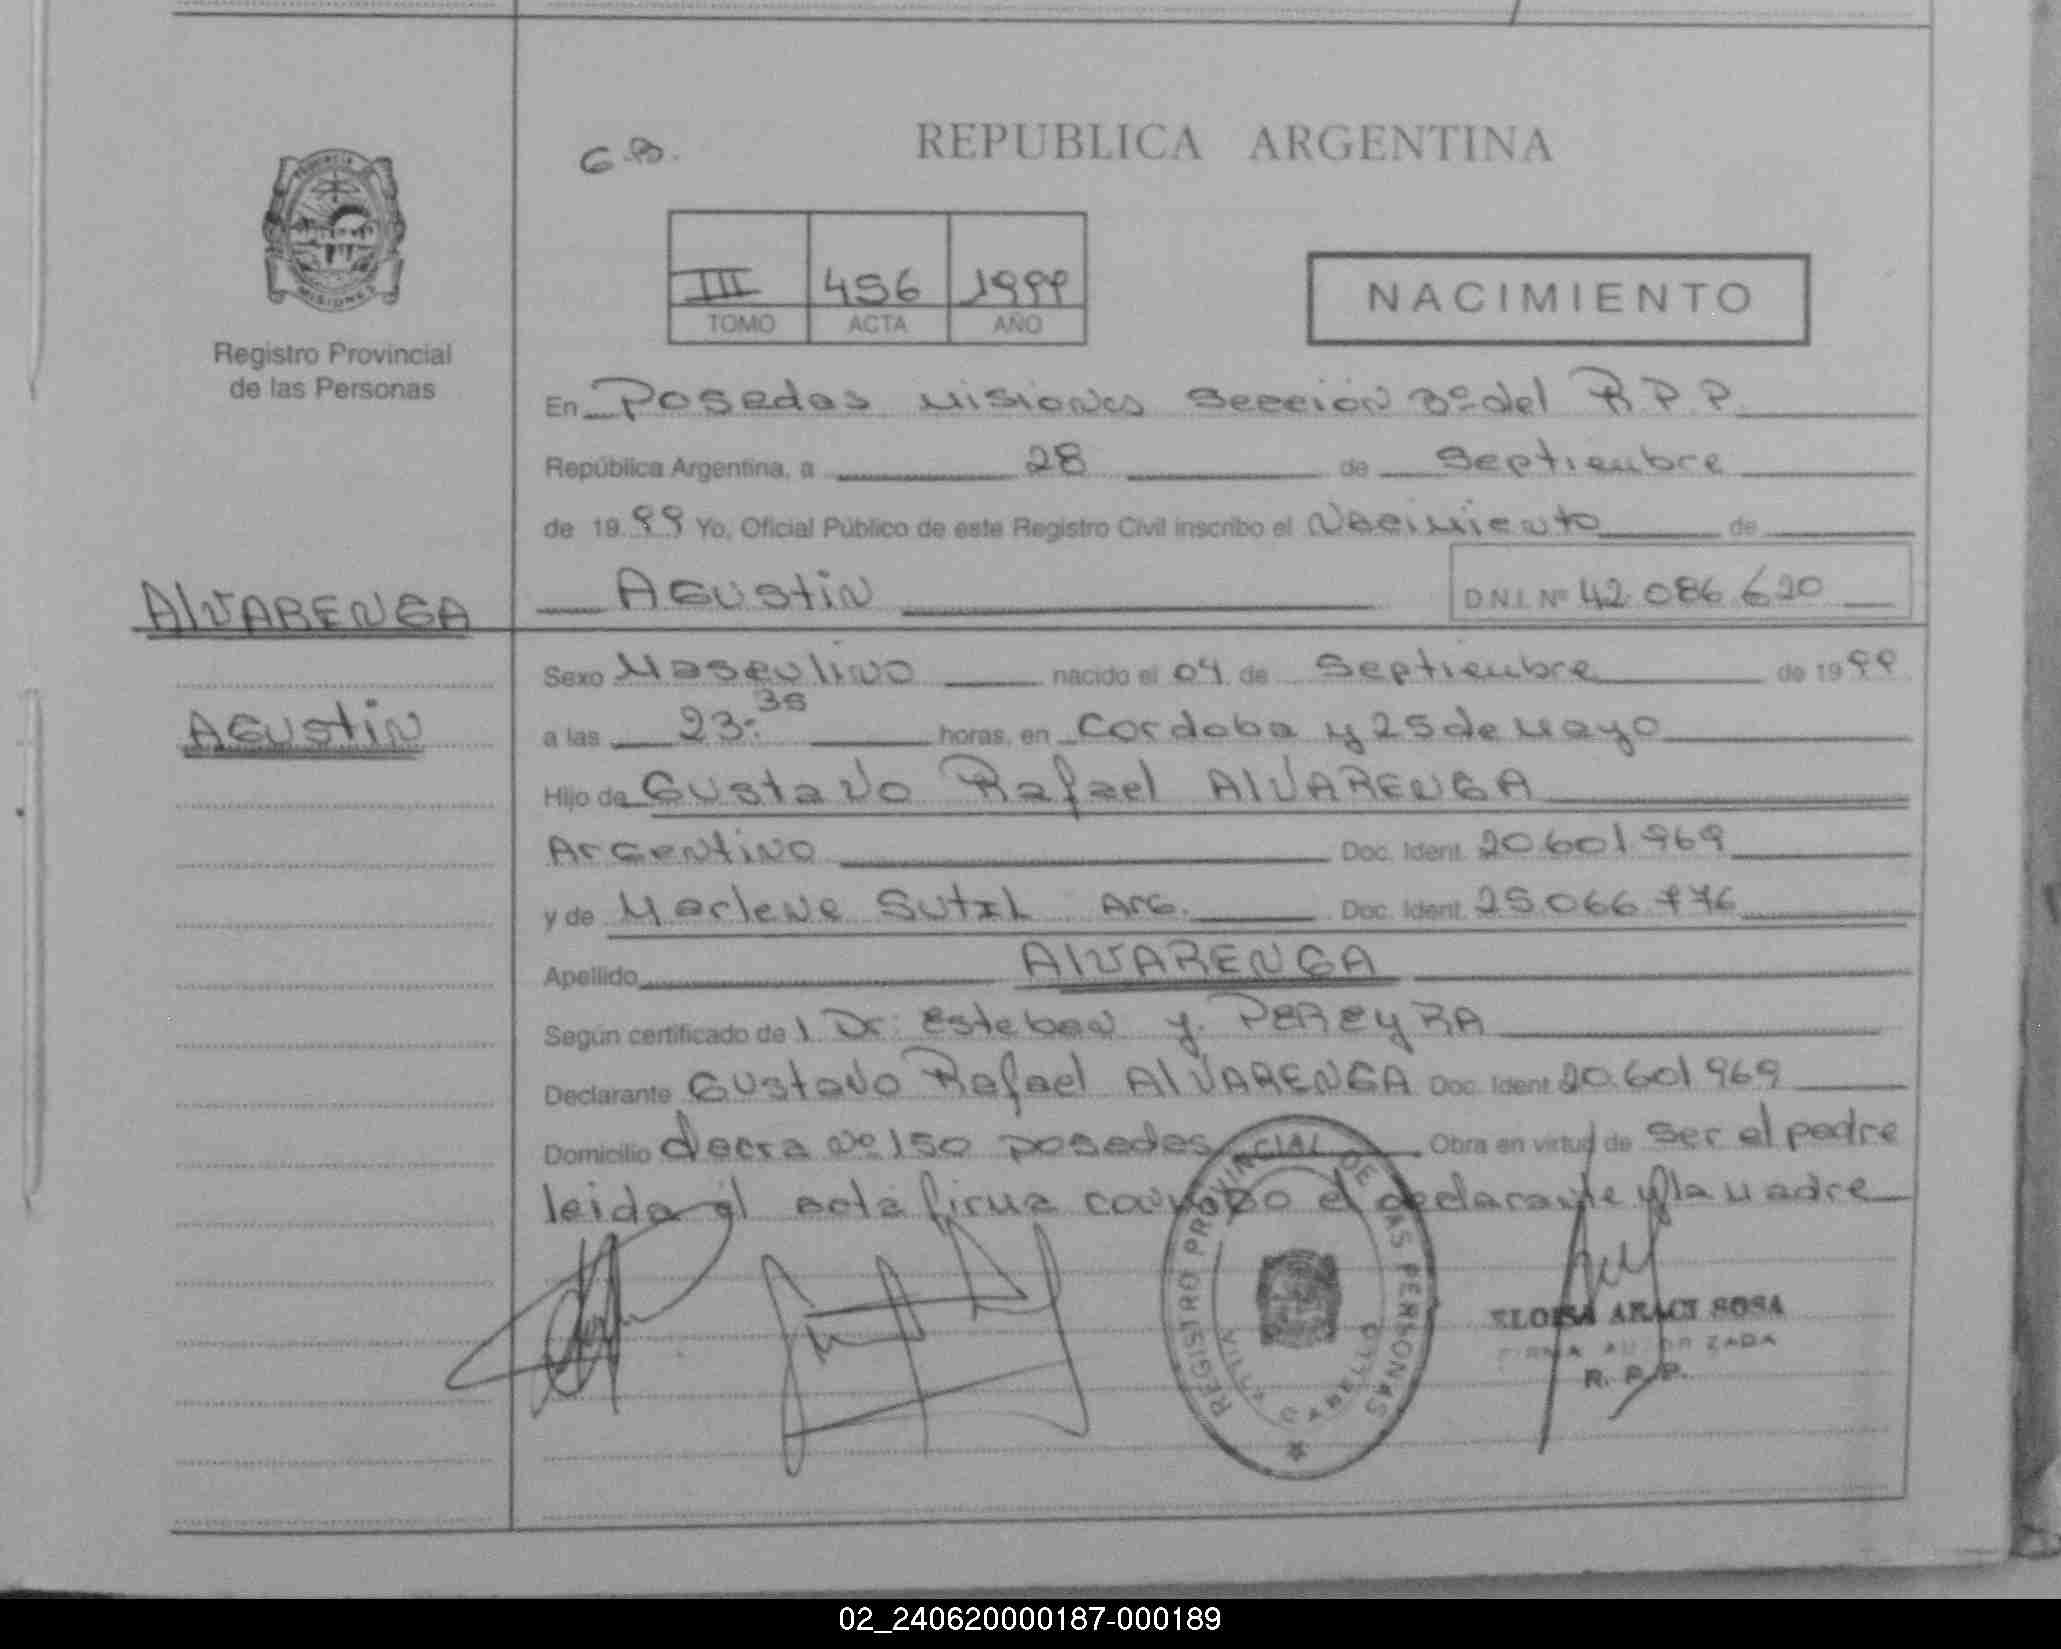 G.B.
REPUBLICA ARGENTINA
PROVINCIA
MISIONES
Registro Provincial
de las Personas
III 456 1999
TOMO ACTA AÑO
NACIMIENTO
En Posadas Misiones Sección 3º del R.P.P.
República Argentina, a 28 de Septiembre
de 1999 Yo, Oficial Público de este Registro Civil inscribo el Nacimiento de
ALVARENGA
Agustin
D.N.I. Nº 42.086.620
Sexo Masculino nacido el 04 de Septiembre de 1999
Agustin
a las 23:35 horas, en Cordoba y 25 de Mayo
Hijo de Gustavo Rafael ALVARENGA
Argentino Doc. Ident. 20.601.969
y de Marlene Sutil Arg. Doc. Ident. 25.066.776
Apellido ALVARENGA
Según certificado de l Dr: Esteban y. PEREYRA
Declarante Gustavo Rafael ALVARENGA Doc. Ident. 20.601.969
Domicilio Nº 150 Posadas Obra en virtud de ser el padre
leida el acta firma conmigo el declarante y la madre
REGISTRO PROVINCIAL DE LAS PERSONAS
CABELLO
ELOISA ARACI SOSA
FIRMA AUTORIZADA
R. P. P.
02_240620000187-000189